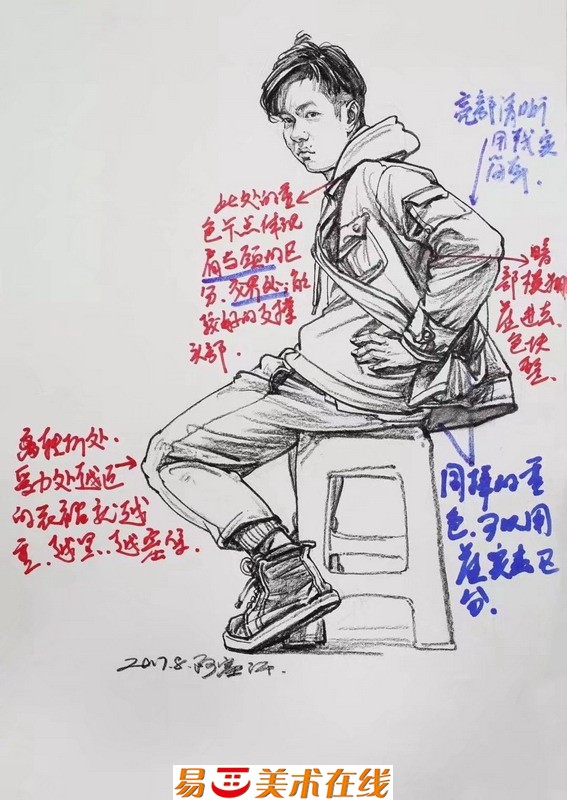 亮部清晰
用线实
此处的重
色节点体现
肩与颈的区
分,交界处;能
较好的支撑
头部.
暗
部模糊
虚进去,
色块
离转折处.
受力处越近
的衣褶就越
重.越黑.越密集.
同样的重
色.可以用
虚实去区
分.
2017.8.
易三美术在线